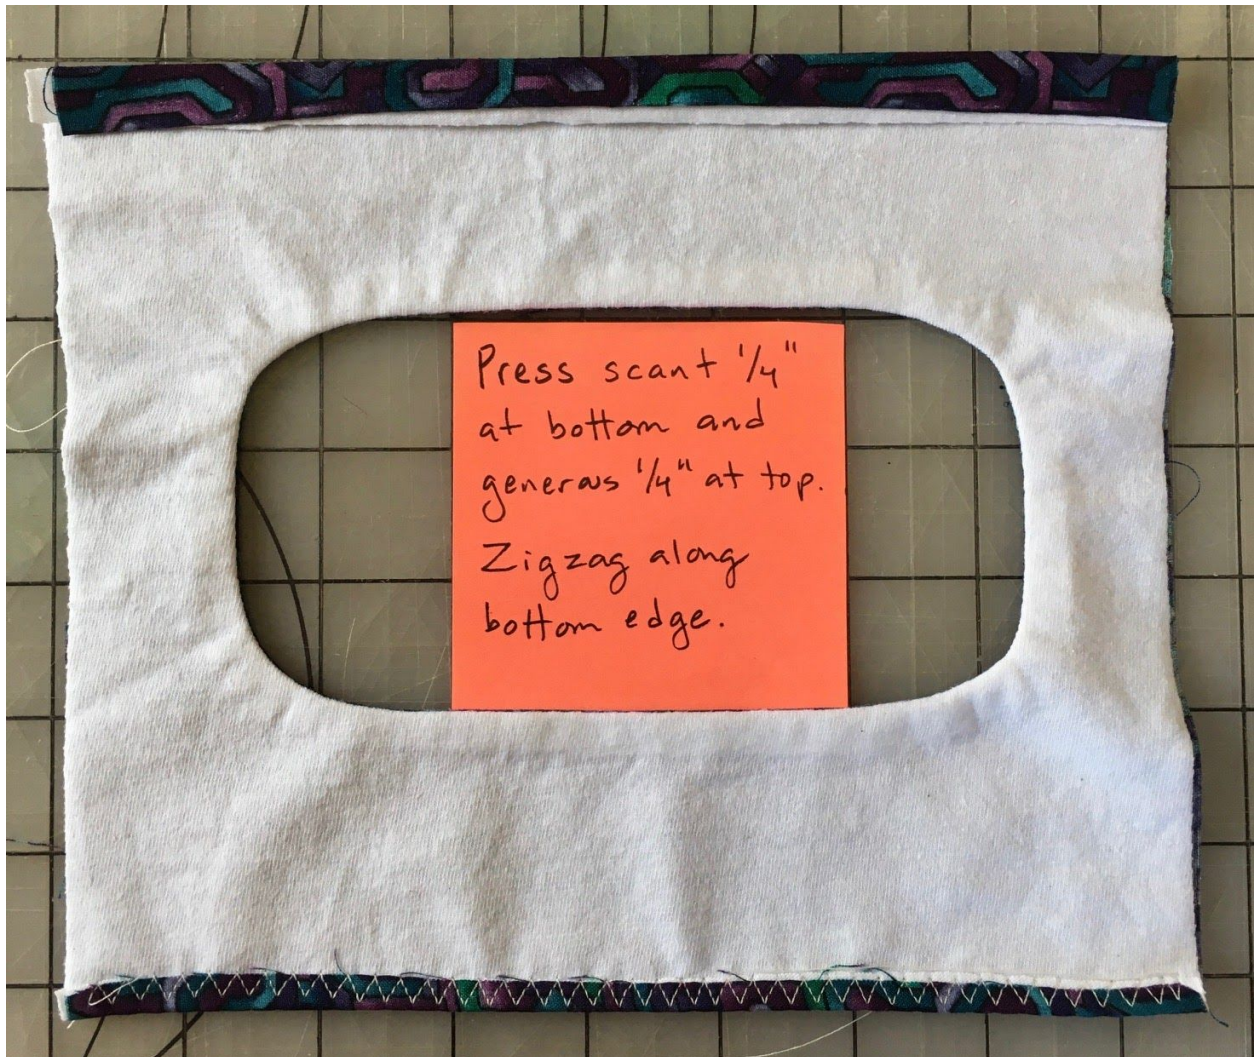 Press scant 1/4"
at bottom and
generous 1/4" at top.
Zigzag along
bottom edge.